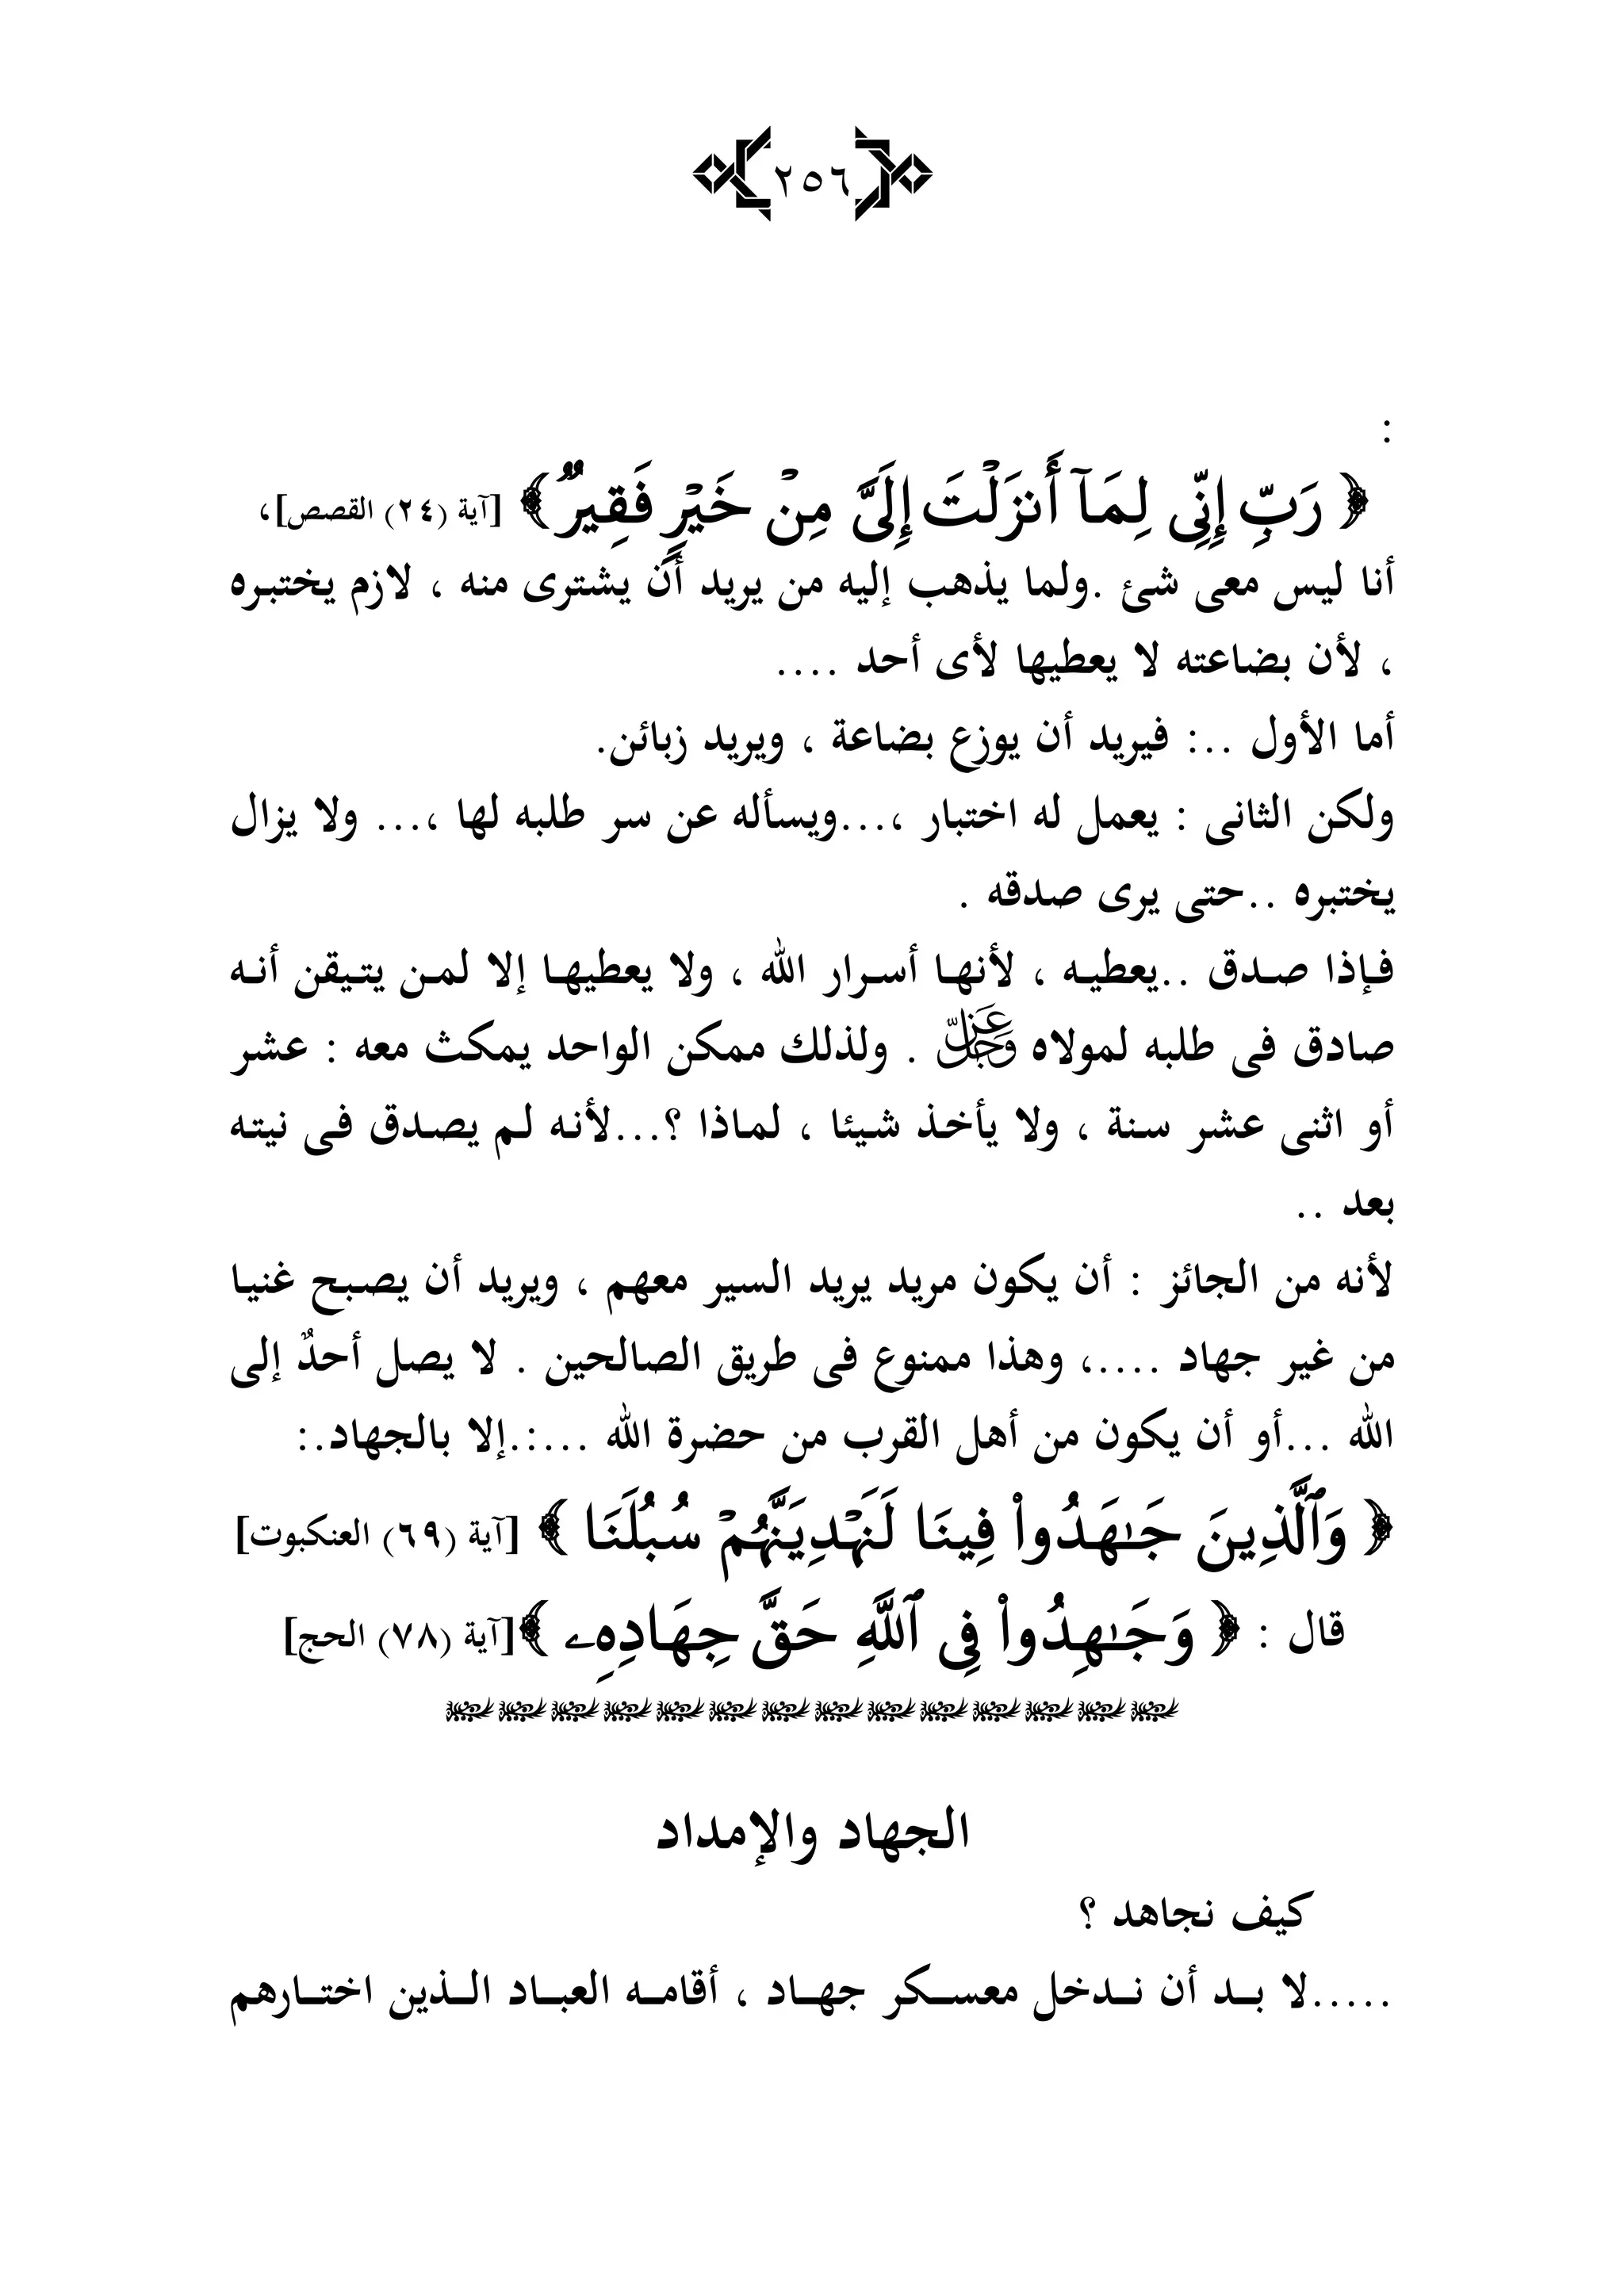 ٢٥٦
:
﴿ رَبِّ إِنِّى لِمَآ أَنزَلْتَ إِلَىَّ مِنْ خَيْرٍ فَقِيرٌ ﴾ [آية (٢٤) القصص]،
أنا ليس معى شئ .ولما يذهب إليه من يريد أن يشترى منه ، لازم يختبره
، لأن بضاعته لا يعطيها لأى أحد ....
أما الأول ..: فيريد أن يوزع بضاعة ، ويريد زبائن.
ولكن الثانى : يعمل له اختبار ،...ويسأله عن سر طلبه لها ،... ولا يزال
يختبره ..حتى يرى صدقه .
فإذا صدق ..يعطيه ، لأنها أسرار الله ، ولا يعطيها إلا لمن يتيقن أنه
صادق فى طلبه لمولاه عَزَّ وَجَلَّ . ولذلك ممكن الواحد يمكث معه : عشر
أو اثنى عشر سنة ، ولا يأخذ شيئا ، لماذا ؟...لأنه لم يصدق فى نيته
بعد ..
لأنه من الجائز : أن يكون مريد يريد السير معهم ، ويريد أن يصبح غنيا
من غير جهاد ....، وهذا ممنوع فى طريق الصالحين . لا يصل أحدٌ إلى
الله ...أو أن يكون من أهل القرب من حضرة الله ...:.إلا بالجهاد.:
﴿ وَٱلَّذِينَ جَـٰهَدُوا۟ فِينَا لَنَهْدِيَنَّهُمْ سُبُلَنَا ﴾ [آية (٦٩) العنكبوت]
قال : ﴿ وَجَـٰهِدُوا۟ فِى ٱللَّهِ حَقَّ جِهَادِهِۦ ﴾[آية (٧٨) الحج]
الجهاد والإمداد
كيف نجاهد ؟
.....لا بد أن ندخل معسكر جهاد ، أقامه العباد الذين اختارهم